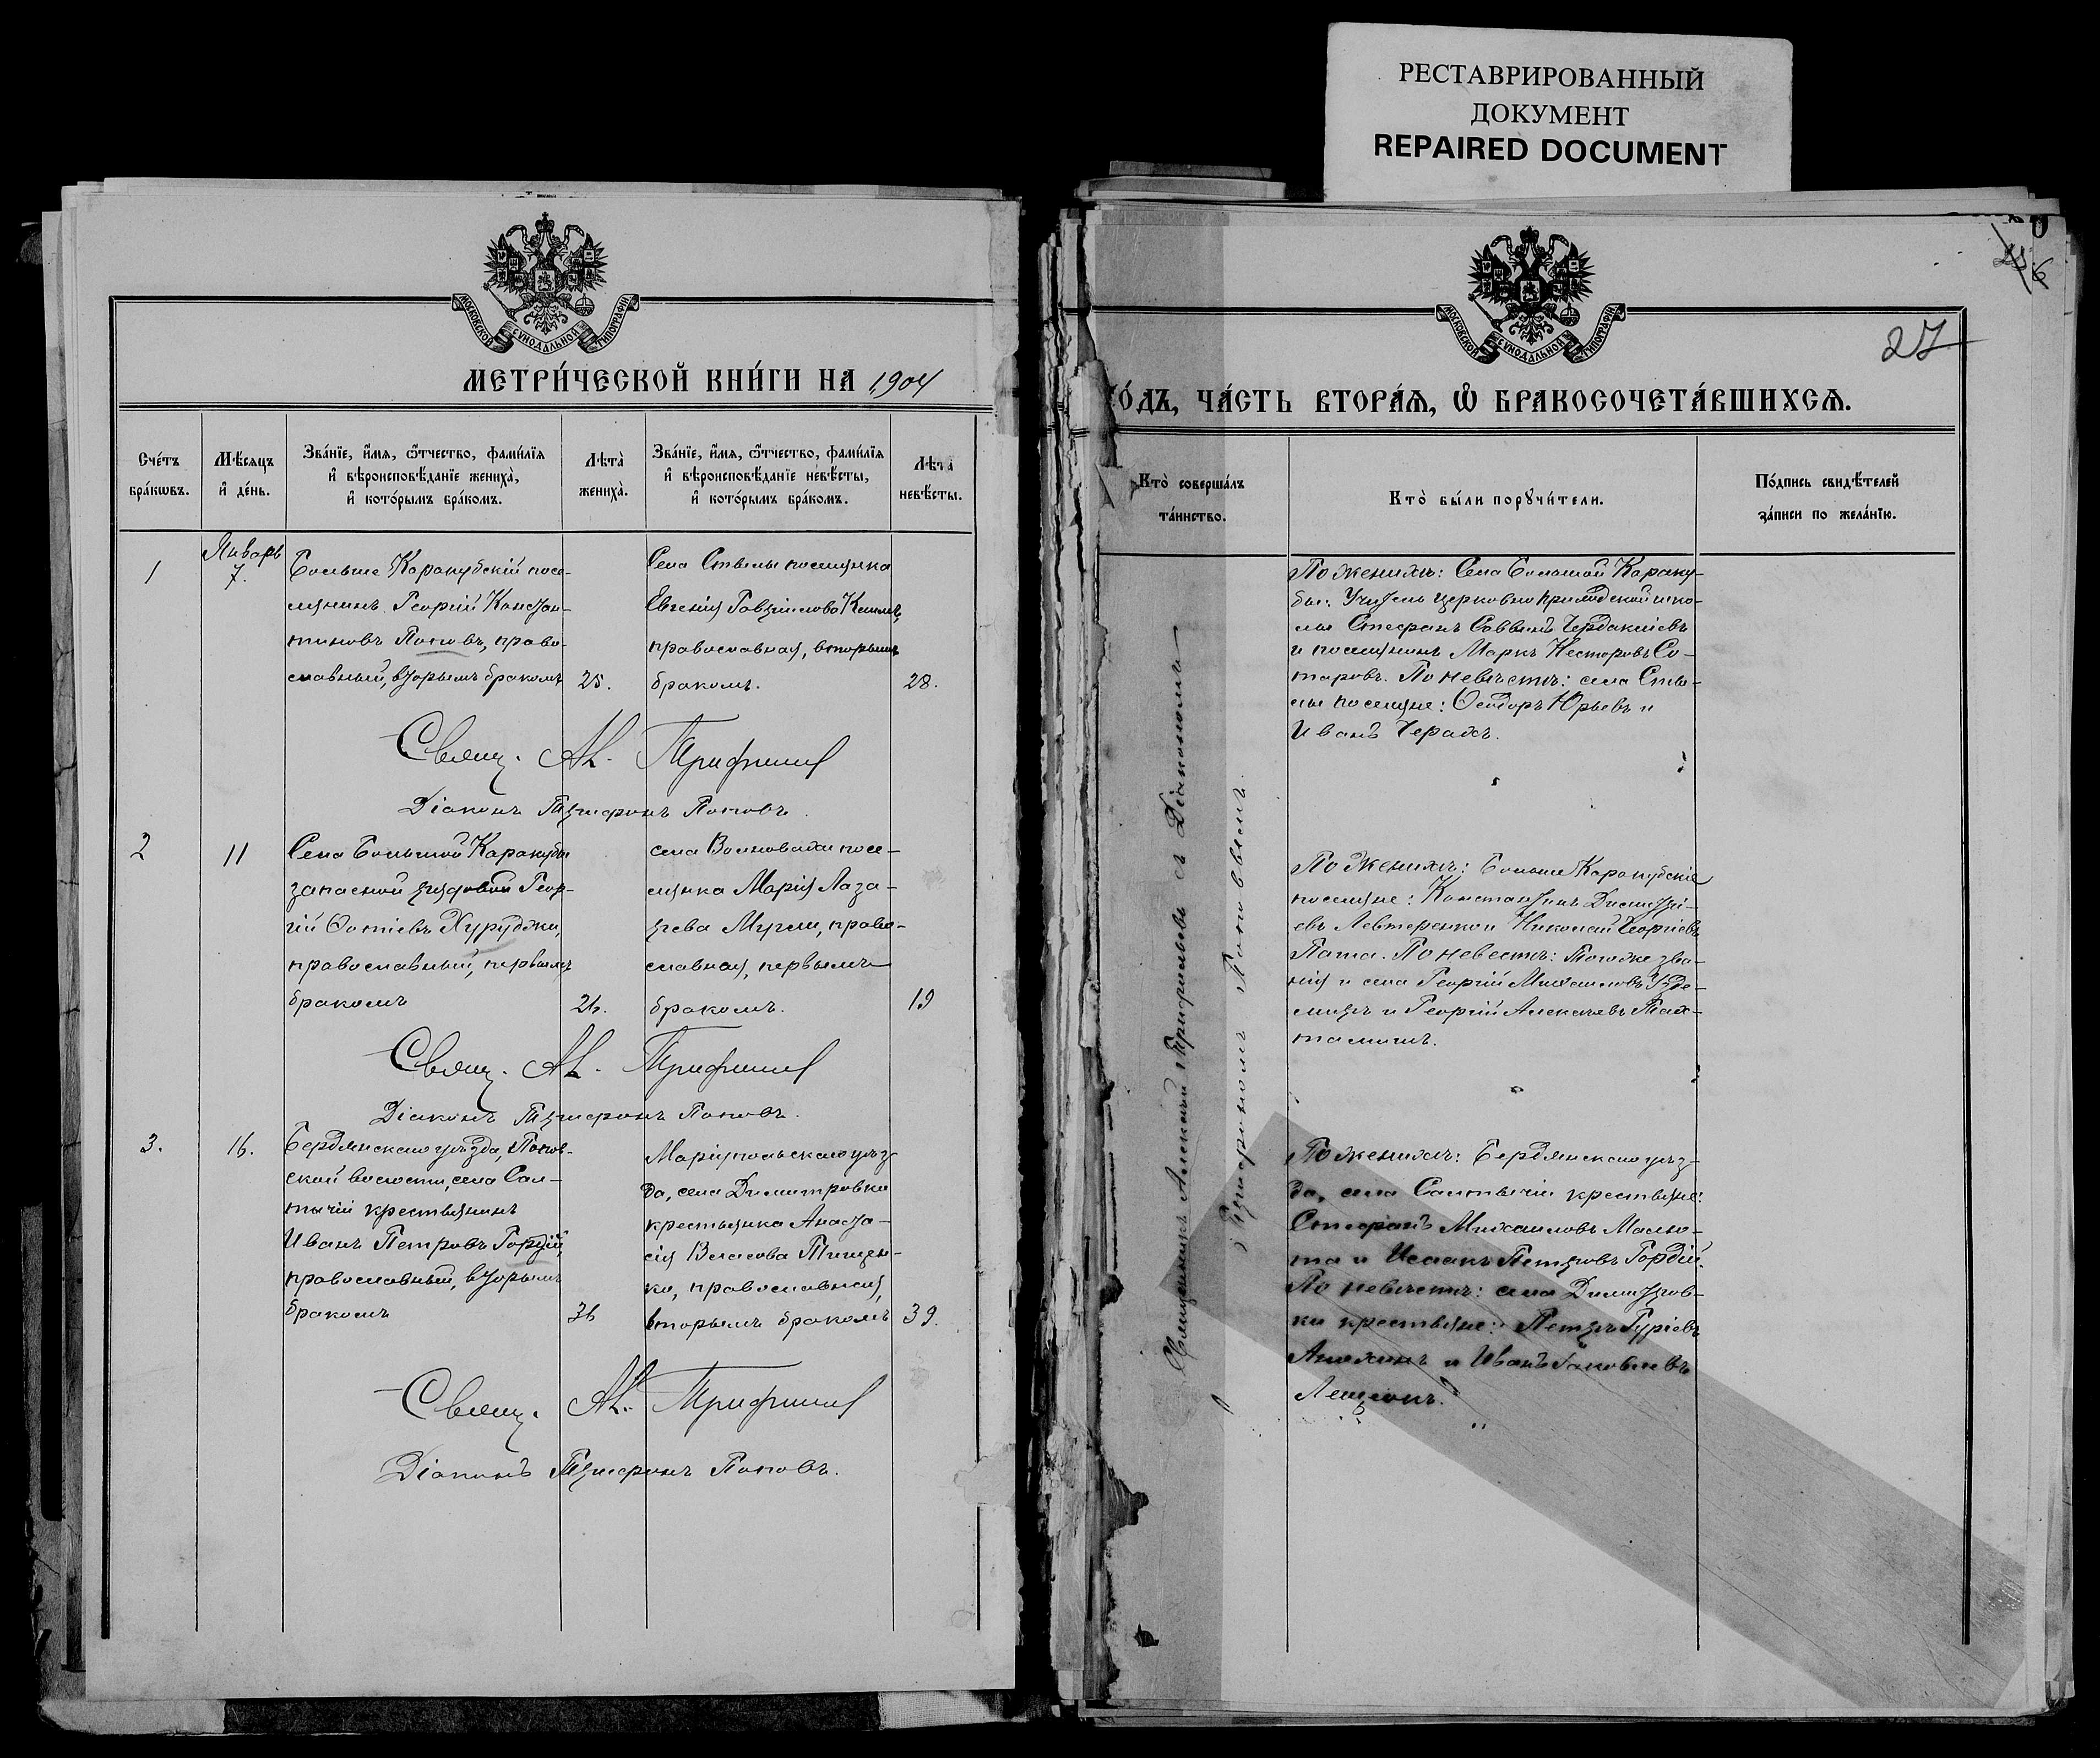 РЕСТАВРИРОВАННЫЙ
ДОКУМЕНТ
REPAIRED DOCUMENT
МОСКОВСКОЙ СѴНОДАЛЬНОЙ ТИПОГРАФІИ
МЕТРИ́ЧЕСКОЙ КНИ́ГИ НА 1904
Сче́тъ
бра́кѡвъ.
Мѣ́сѧцъ
и҆ де́нь.
Зва́нїе, и҆́мѧ, ѻ҆́тчество, фами́лїѧ
и҆ вѣроисповѣ́данїе жениха̀,
и҆ кото́рымъ бра́комъ.
Лѣта̀
жениха̀.
Зва́нїе, и҆́мѧ, ѻ҆́тчество, фами́лїѧ
и҆ вѣроисповѣ́данїе невѣ́сты,
и҆ кото́рымъ бра́комъ.
Лѣта̀
невѣ́сты.
1
Январь
7.
Больше Каракубскій посе-
лянинъ Георгій Констан-
тиновъ Поповъ, право-
славный, вторымъ бракомъ
25.
Села Стылы поселянка
Евгенія
православная, вторымъ
бракомъ.
28.
Свящ. Ал. Трифильев
Діаконъ Трифонъ Поповъ.
2
11
Села Большой Каракубы
запасной рядовой Геор-
гій Фотіевъ Хуруджи,
православный, первымъ
бракомъ
26.
села Волновахи посе-
лянка Марія Лаза-
рева Мурги, право-
славная, первымъ
бракомъ.
19
Свящ. Ал. Трифильев
Діаконъ Трифонъ Поповъ.
3.
16.
Бердянскаго уѣзда, Попов-
ской волости, села Сал-
тычіи крестьянинъ
Иванъ Петровъ Гордій,
православный, вторымъ
бракомъ
36
Маріупольскаго уѣз-
да, села Димитровки
крестьянка Анаста-
сія Власова Тищен-
ко, православная,
вторымъ бракомъ
39.
Свящ. Ал. Трифильев
Діаконъ Трифонъ Поповъ.
6
27
МОСКОВСКОЙ СѴНОДАЛЬНОЙ ТИПОГРАФІИ
ГО́ДЪ, ЧА́СТЬ ВТОРА́Ѧ, Ѡ҆ БРАКОСОЧЕТА́ВШИХСѦ.
Кто̀ соверша́лъ
та́инство.
Кто̀ бы́ли порꙋчи́тели.
По́дпись свидѣ́телей
за́писи по жела́нїю.
Священникъ Алексѣй Трифильевъ съ Діакономъ
Трифономъ Поповымъ.
По женихѣ: Села Большой Караку-
бы: Учитель церковно приходской шко-
лы Стефанъ Саввинъ Чердаклиевъ
и поселянинъ Маркъ Несторовъ Со-
таровъ. По невѣстѣ: села Сты-
лы поселяне: Ѳеодоръ Юрьевъ и
Иванъ Черахъ.
По женихѣ: Больше Каракубскіе
поселяне: Константинъ Димитрі-
евъ Левтеренко и Николай Георгіевъ
Папа. По невестѣ: Тогоже зва-
нія и села Георгій Михаиловъ Узде-
миръ и Георгій Алексѣевъ Тах-
тамышъ.
По женихѣ: Бердянскаго уѣз-
да, села Салтычіи крестьяне:
Стефанъ Михаиловъ Малю-
та и Исаакъ Петровъ Гордій.
По невѣстѣ: села Димитров-
ки крестьяне: Петръ Гуріевъ
Алехинъ и Иванъ Яковлевъ